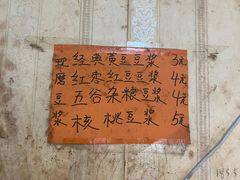 现 经典黄豆豆浆 3元
磨 红枣红豆豆浆 4元
豆 五谷杂粮豆浆 4元
浆 核桃豆浆 5元